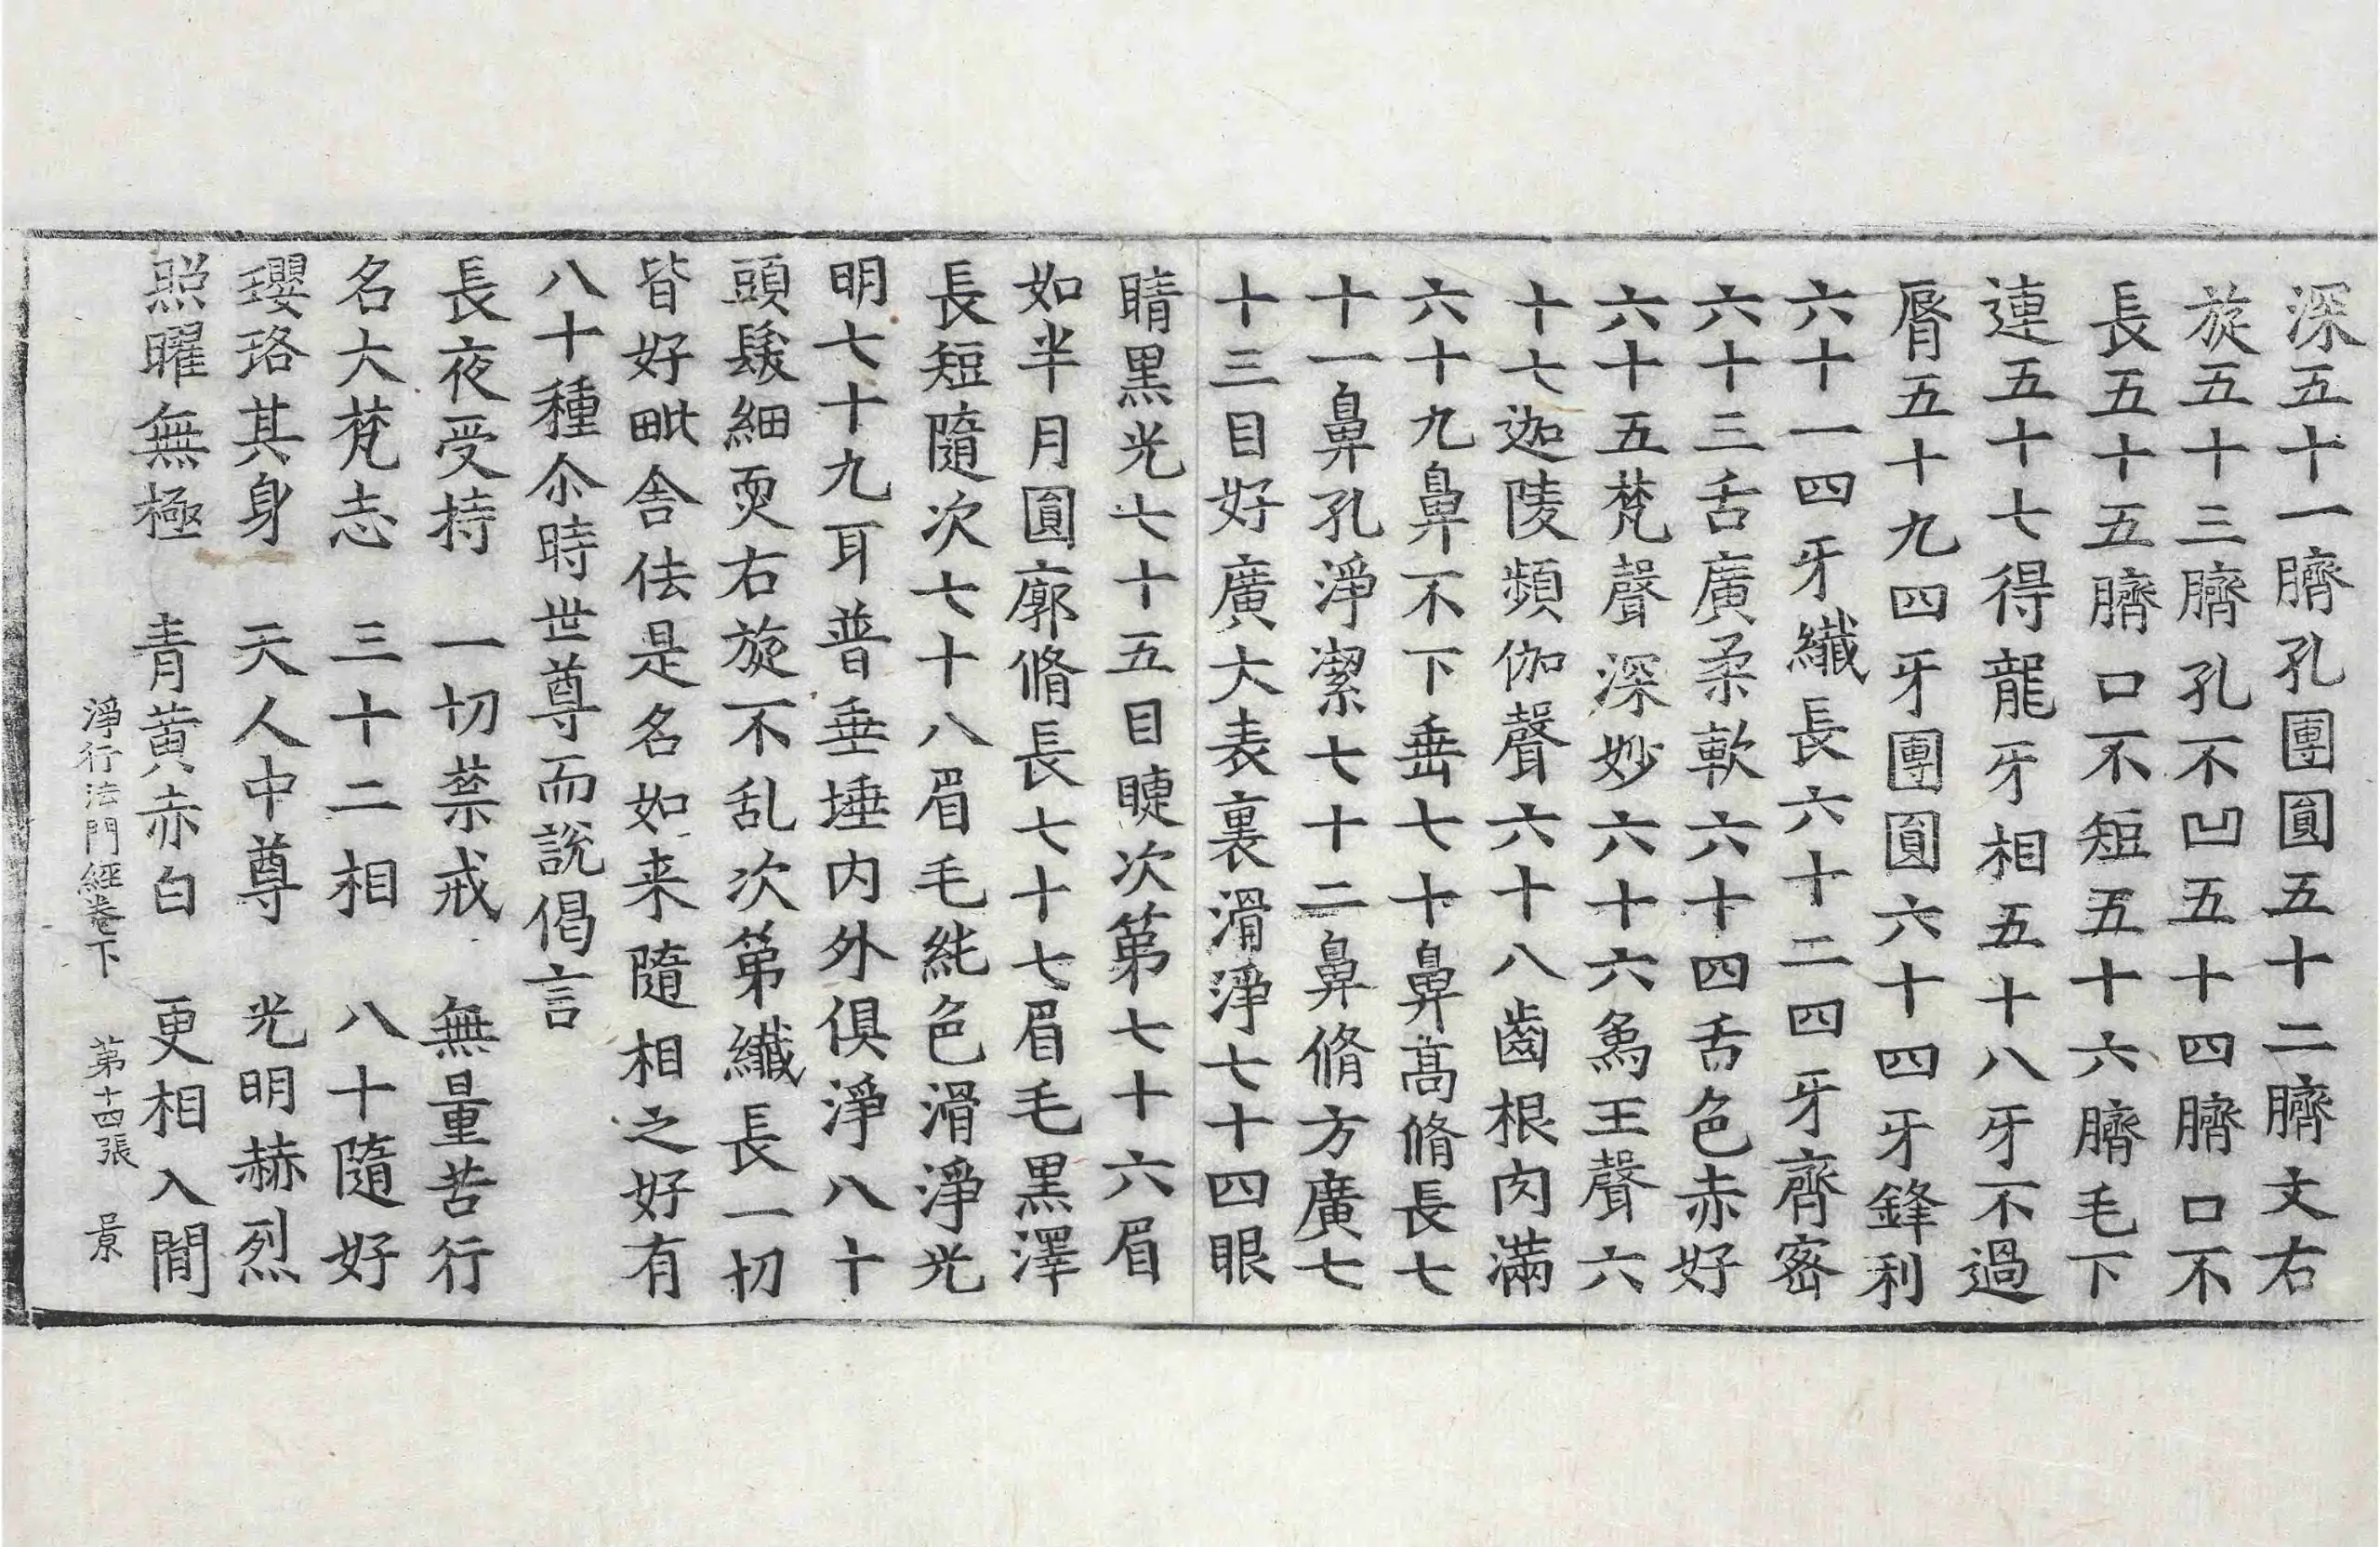 深五十一臍孔團圓五十二臍文右
旋五十三臍孔不凹五十四臍口不
長五十五臍口不短五十六臍毛下
連五十七得龍牙相五十八牙不過
脣五十九四牙團圓六十四牙鋒利
六十一四牙纖長六十二四牙齊密
六十三舌廣柔軟六十四舌色赤好
六十五梵聲深妙六十六鳥王聲六
十七迦陵頻伽聲六十八齒根肉滿
六十九鼻不下垂七十鼻高脩長七
十一鼻孔淨潔七十二鼻脩方廣七
十三目好廣大表裏滑淨七十四眼
睛黑光七十五目睫次第七十六眉
如半月圓廓脩長七十七眉毛黑澤
長短隨次七十八眉毛純色滑淨光
明七十九耳普垂埵内外俱淨八十
頭髮細耎右旋不乱次第纖長一切
皆好毗舍佉是名如来隨相之好有
八十種尒時世尊而說偈言
長夜受持　一切禁戒　無量苦行
名大梵志　三十二相　八十隨好
瓔珞其身　天人中尊　光明赫烈
照曜無極　青黃赤白　更相入閒
淨行法門經卷下　第十四張　景